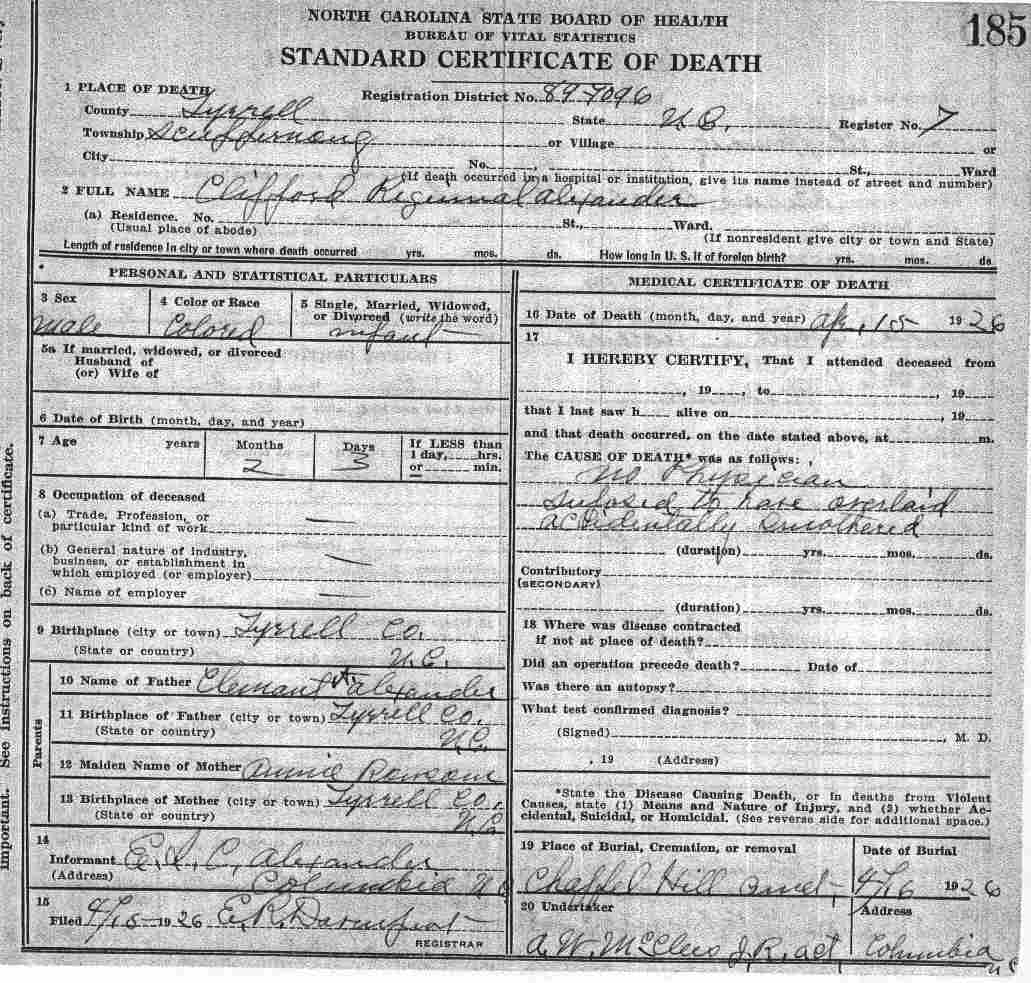 NORTH CAROLINA STATE BOARD OF HEALTH
BUREAU OF VITAL STATISTICS
185
STANDARD CERTIFICATE OF DEATH
1 PLACE OF DEATH
Registration District No. 89-7096
County Tyrrell State N.C. Register No. 7
Township Scuppernong or Village or
City No. St., Ward
(If death occurred in a hospital or institution, give its name instead of street and number)
2 FULL NAME Clifford Reginnal Alexander
(a) Residence. No. St., Ward.
(Usual place of abode) (If nonresident give city or town and State)
Length of residence in city or town where death occurred yrs. mos. ds. How long in U. S. if of foreign birth? yrs. mos. ds
PERSONAL AND STATISTICAL PARTICULARS
3 Sex
male
4 Color or Race
Colored
5 Single, Married, Widowed,
or Divorced (write the word)
infant
5a If married, widowed, or divorced
Husband of
(or) Wife of
6 Date of Birth (month, day, and year)
7 Age years Months Days If LESS than
1 day, hrs.
or min.
2 3
8 Occupation of deceased
(a) Trade, Profession, or
particular kind of work —
(b) General nature of industry,
business, or establishment in
which employed (or employer) —
(c) Name of employer —
9 Birthplace (city or town) Tyrrell Co.
(State or country) N.C.
Parents
10 Name of Father Clemant Alexander
11 Birthplace of Father (city or town) Tyrrell Co.
(State or country) N.C.
12 Maiden Name of Mother Annie
13 Birthplace of Mother (city or town) Tyrrell Co.
(State or country) N.C.
14
Informant Alexander
(Address) Columbia N C
15
Filed 4/15-1926 E.R. Davenport
REGISTRAR
MEDICAL CERTIFICATE OF DEATH
16 Date of Death (month, day, and year) Ap, 15 1926
17
I HEREBY CERTIFY, That I attended deceased from
, 19 , to , 19
that I last saw h alive on , 19
and that death occurred, on the date stated above, at m.
The CAUSE OF DEATH* was as follows:
no Physician
suposed to have overlaid
accidentally smothered
(duration) yrs. mos. ds.
Contributory
(SECONDARY)
(duration) yrs. mos. ds.
18 Where was disease contracted
if not at place of death?
Did an operation precede death? Date of
Was there an autopsy?
What test confirmed diagnosis?
(Signed) , M. D.
, 19 (Address)
*State the Disease Causing Death, or in deaths from Violent
Causes, state (1) Means and Nature of Injury, and (2) whether Ac-
cidental, Suicidal, or Homicidal. (See reverse side for additional space.)
19 Place of Burial, Cremation, or removal
Chappel Hill
Date of Burial
4/16 1926
20 Undertaker
A. W. McClees J.R. act
Address
Columbia
N C
important. See instructions on back of certificate.